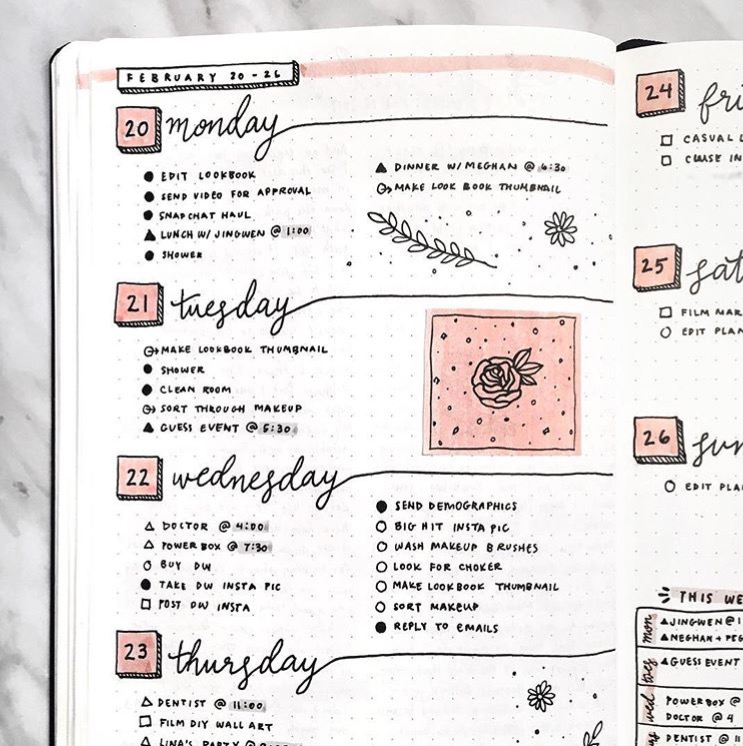 FEBRUARY 20 - 26
20 monday
EDIT LOOKBOOK
SEND VIDEO FOR APPROVAL
SNAPCHAT HAUL
LUNCH W/ JINGWEN @ 1:00
SHOWER
DINNER W/ MEGHAN @ 6:30
MAKE LOOK BOOK THUMBNAIL
21 tuesday
MAKE LOOKBOOK THUMBNAIL
SHOWER
CLEAN ROOM
SORT THROUGH MAKEUP
GUESS EVENT @ 5:30
22 wednesday
DOCTOR @ 4:00
POWER BOX @ 7:30
BUY DW
TAKE DW INSTA PIC
POST DW INSTA
SEND DEMOGRAPHICS
BIG HIT INSTA PIC
WASH MAKEUP BRUSHES
LOOK FOR CHOKER
MAKE LOOKBOOK THUMBNAIL
SORT MAKEUP
REPLY TO EMAILS
23 thursday
DENTIST @ 11:00
FILM DIY WALL ART
LINA'S PARTY @
24 fri
CASUAL
25 sat
FILM MAR
EDIT PLAN
26 sun
EDIT PLAN
THIS WE
mon
JINGWEN @ 1
MEGHAN + PEG
tues
GUESS EVENT
wed
POWERBOX @
DOCTOR @ 4
DENTIST @ 11